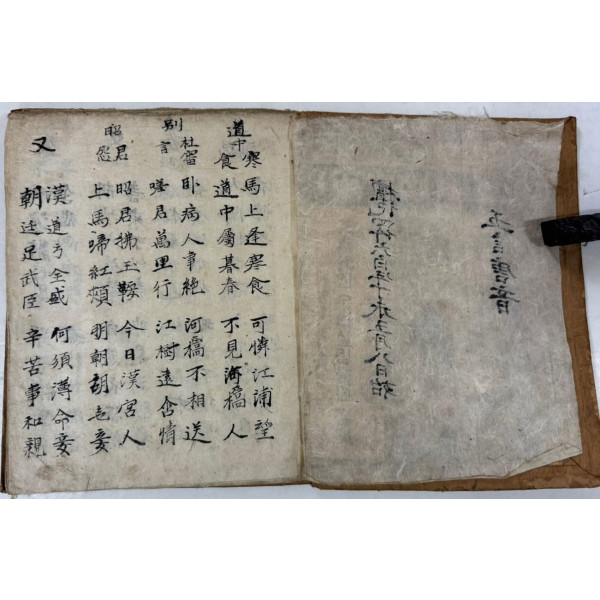 五言唐音
五月八日始
道中寒食
馬上逢寒食 可憐江浦望
道中屬暮春 不見橋人
別杜審言
卧病人事絶 河橋不相送
嗟君萬里行 江樹遠含情
昭君怨
昭君拂玉鞍 今日漢宮人
上馬啼紅頰 明朝胡地妾
又
漢道方全盛 何須薄命妾
朝廷足武臣 辛苦事和親